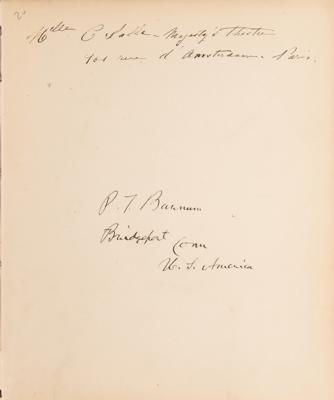 Mlle C Salla - Majesty's Theatre
rue d'Amsterdam - Paris.
P. T. Barnum
Bridgeport
Conn
U. S. America